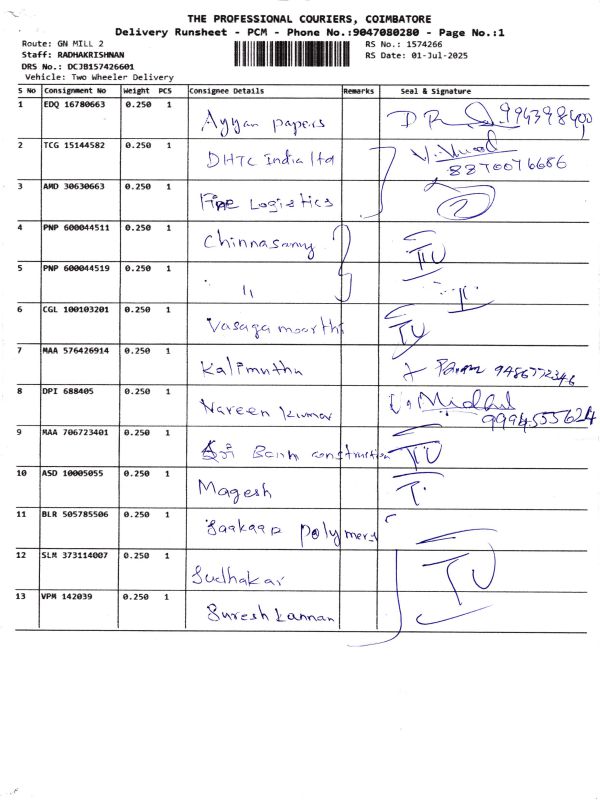 THE PROFESSIONAL COURIERS, COIMBATORE
Delivery Runsheet - PCM - Phone No.:9047080280 - Page No.:1
Route: GN MILL 2 RS No.: 1574266
Staff: RADHAKRISHNAN RS Date: 01-Jul-2025
DRS No.: DCJB157426601
Vehicle: Two Wheeler Delivery
S No Consignment No Weight PCS Consignee Details Remarks Seal & Signature
1 EDQ 16780663 0.250 1 Ayyan papers D R
2 TCG 15144582 0.250 1 DHTC India ltd V. Vinod
8870076686
3 AMD 30630663 0.250 1 Fine Logistics 2
4 PNP 600044511 0.250 1 Chinnasamy TU
5 PNP 600044519 0.250 1 " T
6 CGL 100103201 0.250 1 Vasagamoorthi TU
7 MAA 576426914 0.250 1 Kalimuthu 9486772346
8 DPI 688405 0.250 1 Naveen Kumar Midhul
9994555624
9 MAA 706723401 0.250 1 Sri Bank construction TU
10 ASD 10005055 0.250 1 Magesh T.
11 BLR 505785506 0.250 1 polymers
12 SLM 373114007 0.250 1 Sudhakar TU
13 VPM 142039 0.250 1 Suresh kannan